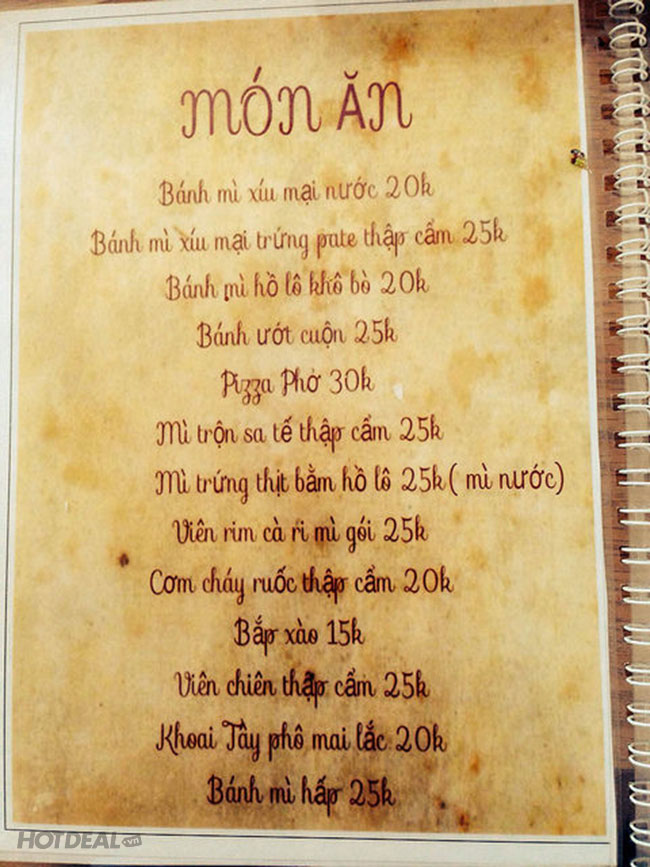 MÓN ĂN
Bánh mì xíu mại nước 20k
Bánh mì xíu mại trứng pate thập cẩm 25k
Bánh mì hồ lô khô bò 20k
Bánh ướt cuộn 25k
Pizza Phở 30k
Mì trộn sa tế thập cẩm 25k
Mì trứng thịt bằm hồ lô 25k( mì nước)
Viên rim cà ri mì gói 25k
Cơm cháy ruốc thập cẩm 20k
Bắp xào 15k
Viên chiên thập cẩm 25k
Khoai Tây phô mai lắc 20k
Bánh mì hấp 25k
HOTDEAL.vn